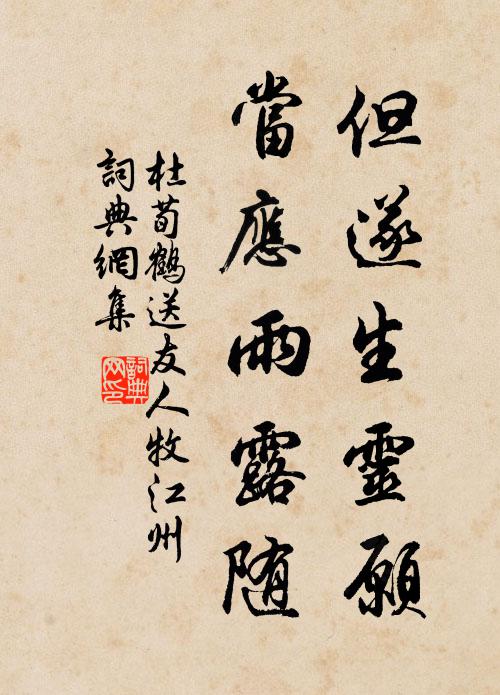 但遂生靈願
當應雨露随
杜荀鶴送友人牧江州
詞典網集
詞典网印